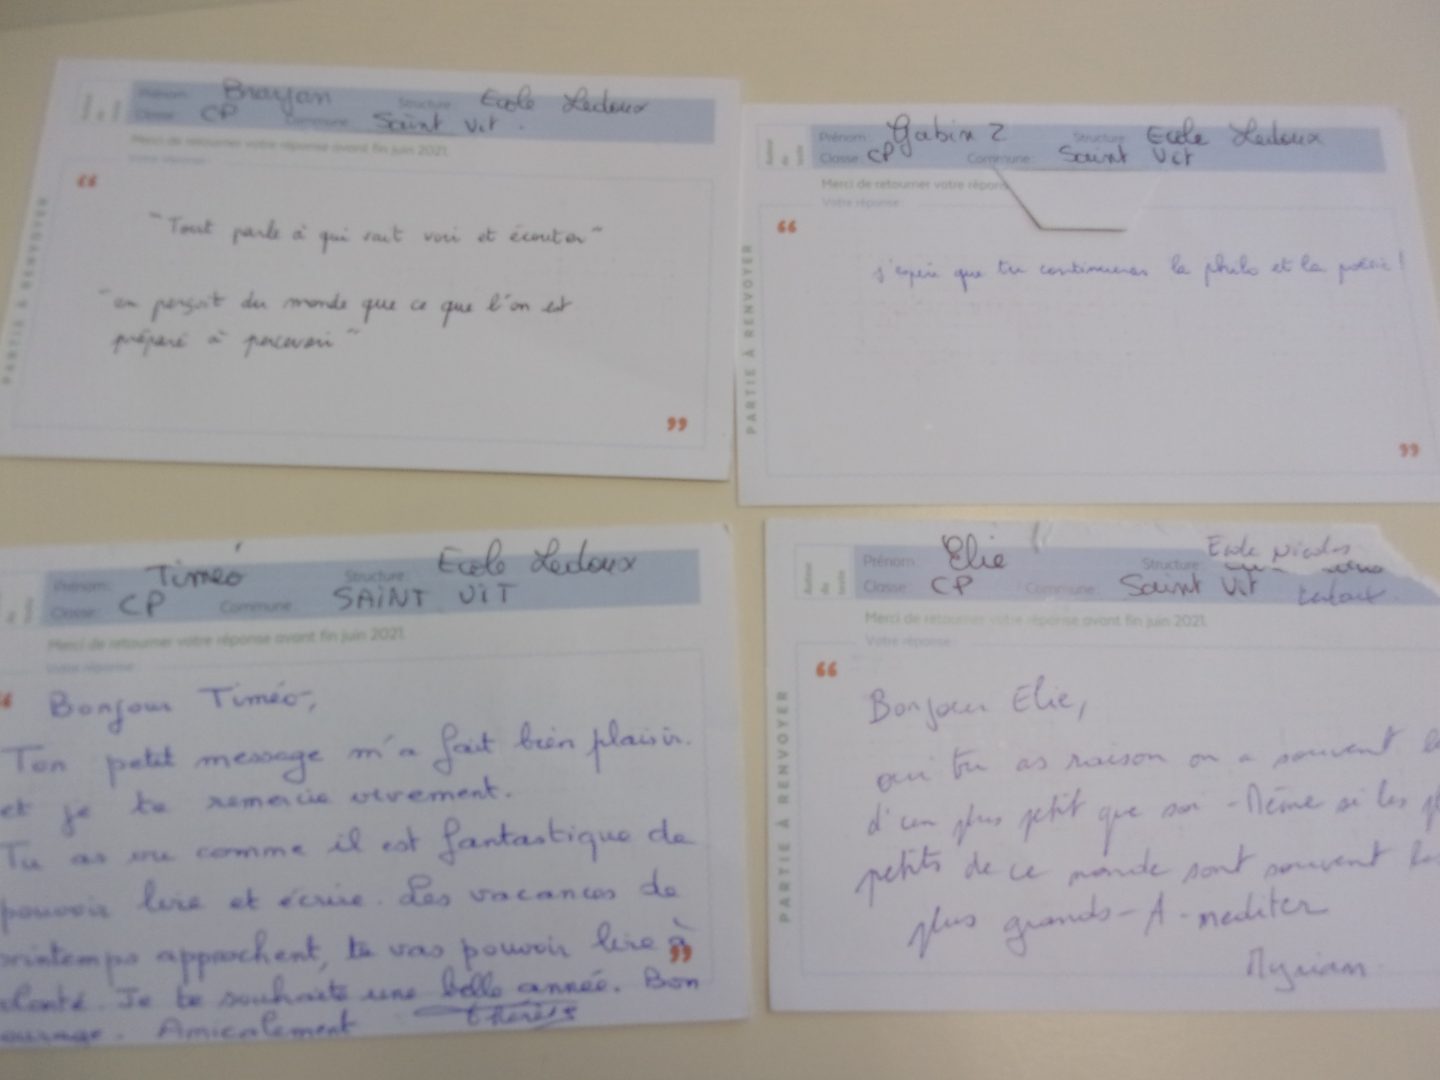 Prénom: Brayan Structure: Ecole Ledoux
Classe: CP Commune: Saint Vit.
Merci de retourner votre réponse avant fin juin 2021.
Votre réponse:
PARTIE À RENVOYER
"Tout parle à qui sait voir et écouter"
"on perçoit du monde que ce que l'on est
préparé à percevoir"
Auteur du texte
Prénom: Gabin Z Structure: Ecole Ledoux
Classe: CP Commune: Saint Vit
Merci de retourner votre répons
Votre réponse:
PARTIE À RENVOYER
j'espère que tu continueras la philo et la poésie!
Prénom: Timéo Structure: Ecole Ledoux
Classe: CP Commune: SAINT VIT
Merci de retourner votre réponse avant fin juin 2021.
Votre réponse:
Bonjour Timéo,
Ton petit message m'a fait bien plaisir.
et je te remercie vivement.
Tu as vu comme il est fantastique de
pouvoir lire et écrire. Les vacances de
printemps approchent, tu vas pouvoir lire à
olonté. Je te souhaite une belle année. Bon
ourage. Amicalement Thérèse
Auteur du texte
Prénom: Elie Structure: Ecole Nicolas
Classe: CP Saint Vit Ledoux
Merci de retourner votre réponse avant fin juin 2021.
Votre réponse:
PARTIE À RENVOYER
Bonjour Elie,
oui tu as raison on a souvent be
d'un plus petit que soi - Même si les pl
petits de ce monde sont souvent les
plus grands - A - méditer
Myriam